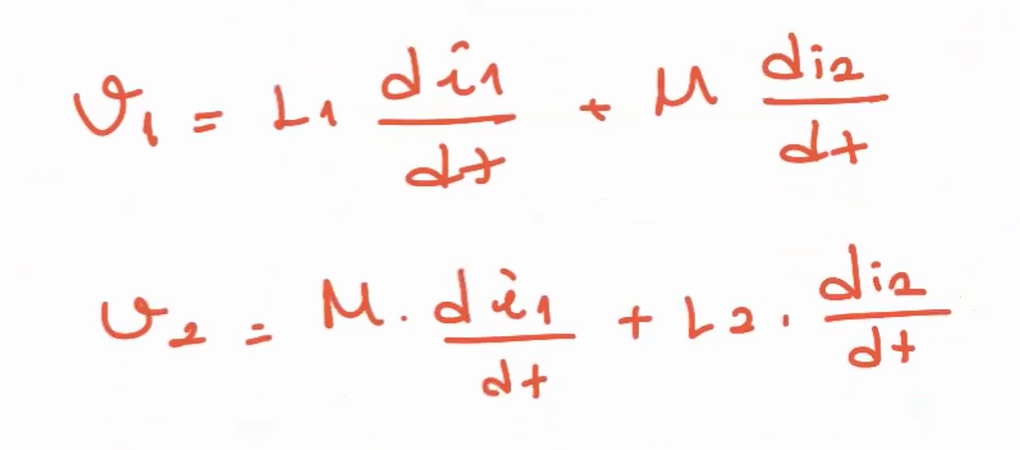 v₁ = L₁ di₁/dt + M di₂/dt
v₂ = M · di₁/dt + L₂ · di₂/dt